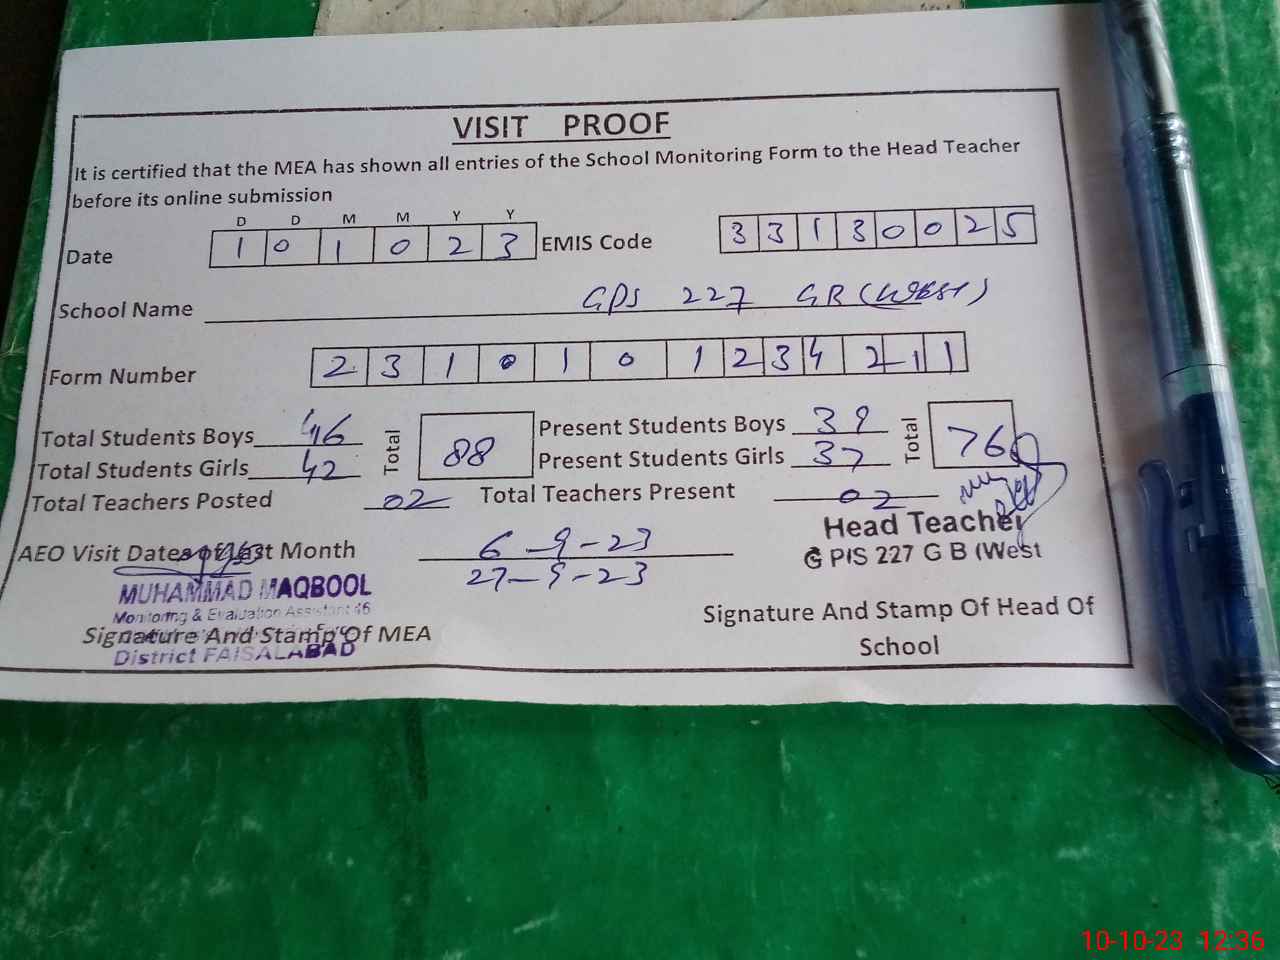 VISIT PROOF
It is certified that the MEA has shown all entries of the School Monitoring Form to the Head Teacher
before its online submission
D D M M Y Y
Date 1 0 1 0 2 3 EMIS Code 3 3 1 3 0 0 2 5
School Name GPS 227 GB (West)
Form Number 2 3 1 0 1 0 1 2 3 4 2 1 1
Total Students Boys 46 Total 88 Present Students Boys 39 Total 76
Total Students Girls 42 Present Students Girls 37
Total Teachers Posted 02 Total Teachers Present 02
Head Teacher
AEO Visit Dates of Last Month 6-9-23
G PS 227 G B (West
27-9-23
MUHAMMAD MAQBOOL
Monitoring & Evaluation Assistant 46
Signature And Stamp Of MEA
District FAISALABAD
Signature And Stamp Of Head Of
School
10-10-23 12:36